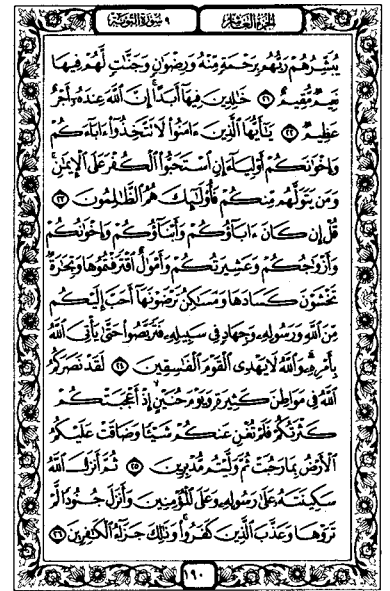 الجزء العاشر
٩ سورة التوبة
يُبَشِّرُهُمْ رَبُّهُم بِرَحْمَةٍ مِّنْهُ وَرِضْوَٰنٍ وَجَنَّٰتٍ لَّهُمْ فِيهَا
نَعِيمٌ مُّقِيمٌ ٢١ خَٰلِدِينَ فِيهَآ أَبَدًا ۚ إِنَّ ٱللَّهَ عِندَهُۥٓ أَجْرٌ
عَظِيمٌ ٢٢ يَٰٓأَيُّهَا ٱلَّذِينَ ءَامَنُوا۟ لَا تَتَّخِذُوٓا۟ ءَابَآءَكُمْ
وَإِخْوَٰنَكُمْ أَوْلِيَآءَ إِنِ ٱسْتَحَبُّوا۟ ٱلْكُفْرَ عَلَى ٱلْإِيمَٰنِ ۚ
وَمَن يَتَوَلَّهُم مِّنكُمْ فَأُو۟لَٰٓئِكَ هُمُ ٱلظَّٰلِمُونَ ٢٣
قُلْ إِن كَانَ ءَابَآؤُكُمْ وَأَبْنَآؤُكُمْ وَإِخْوَٰنُكُمْ
وَأَزْوَٰجُكُمْ وَعَشِيرَتُكُمْ وَأَمْوَٰلٌ ٱقْتَرَفْتُمُوهَا وَتِجَٰرَةٌ
تَخْشَوْنَ كَسَادَهَا وَمَسَٰكِنُ تَرْضَوْنَهَآ أَحَبَّ إِلَيْكُم
مِّنَ ٱللَّهِ وَرَسُولِهِۦ وَجِهَادٍ فِى سَبِيلِهِۦ فَتَرَبَّصُوا۟ حَتَّىٰ يَأْتِىَ ٱللَّهُ
بِأَمْرِهِۦ ۗ وَٱللَّهُ لَا يَهْدِى ٱلْقَوْمَ ٱلْفَٰسِقِينَ ٢٤ لَقَدْ نَصَرَكُمُ
ٱللَّهُ فِى مَوَاطِنَ كَثِيرَةٍ ۙ وَيَوْمَ حُنَيْنٍ ۙ إِذْ أَعْجَبَتْكُمْ
كَثْرَتُكُمْ فَلَمْ تُغْنِ عَنكُمْ شَيْـًٔا وَضَاقَتْ عَلَيْكُمُ
ٱلْأَرْضُ بِمَا رَحُبَتْ ثُمَّ وَلَّيْتُم مُّدْبِرِينَ ٢٥ ثُمَّ أَنزَلَ ٱللَّهُ
سَكِينَتَهُۥ عَلَىٰ رَسُولِهِۦ وَعَلَى ٱلْمُؤْمِنِينَ وَأَنزَلَ جُنُودًا لَّمْ
تَرَوْهَا وَعَذَّبَ ٱلَّذِينَ كَفَرُوا۟ ۚ وَذَٰلِكَ جَزَآءُ ٱلْكَٰفِرِينَ ٢٦
١٩٠